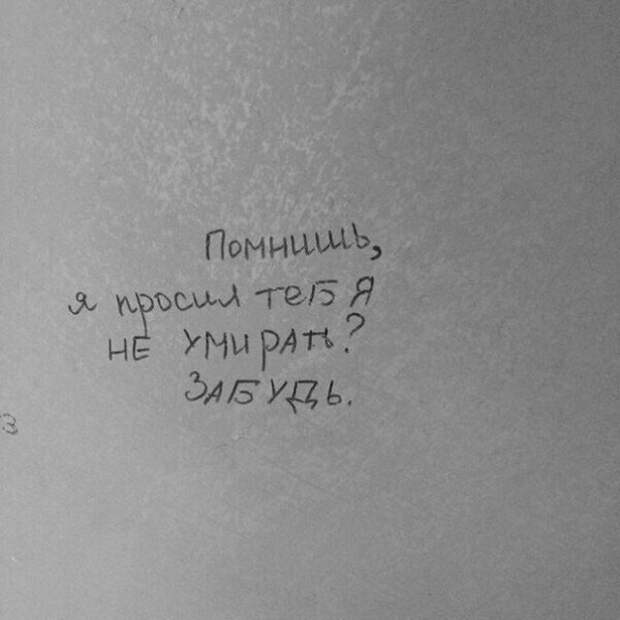 Помнишь,
я просил тебя
не умирать?
Забудь.
з